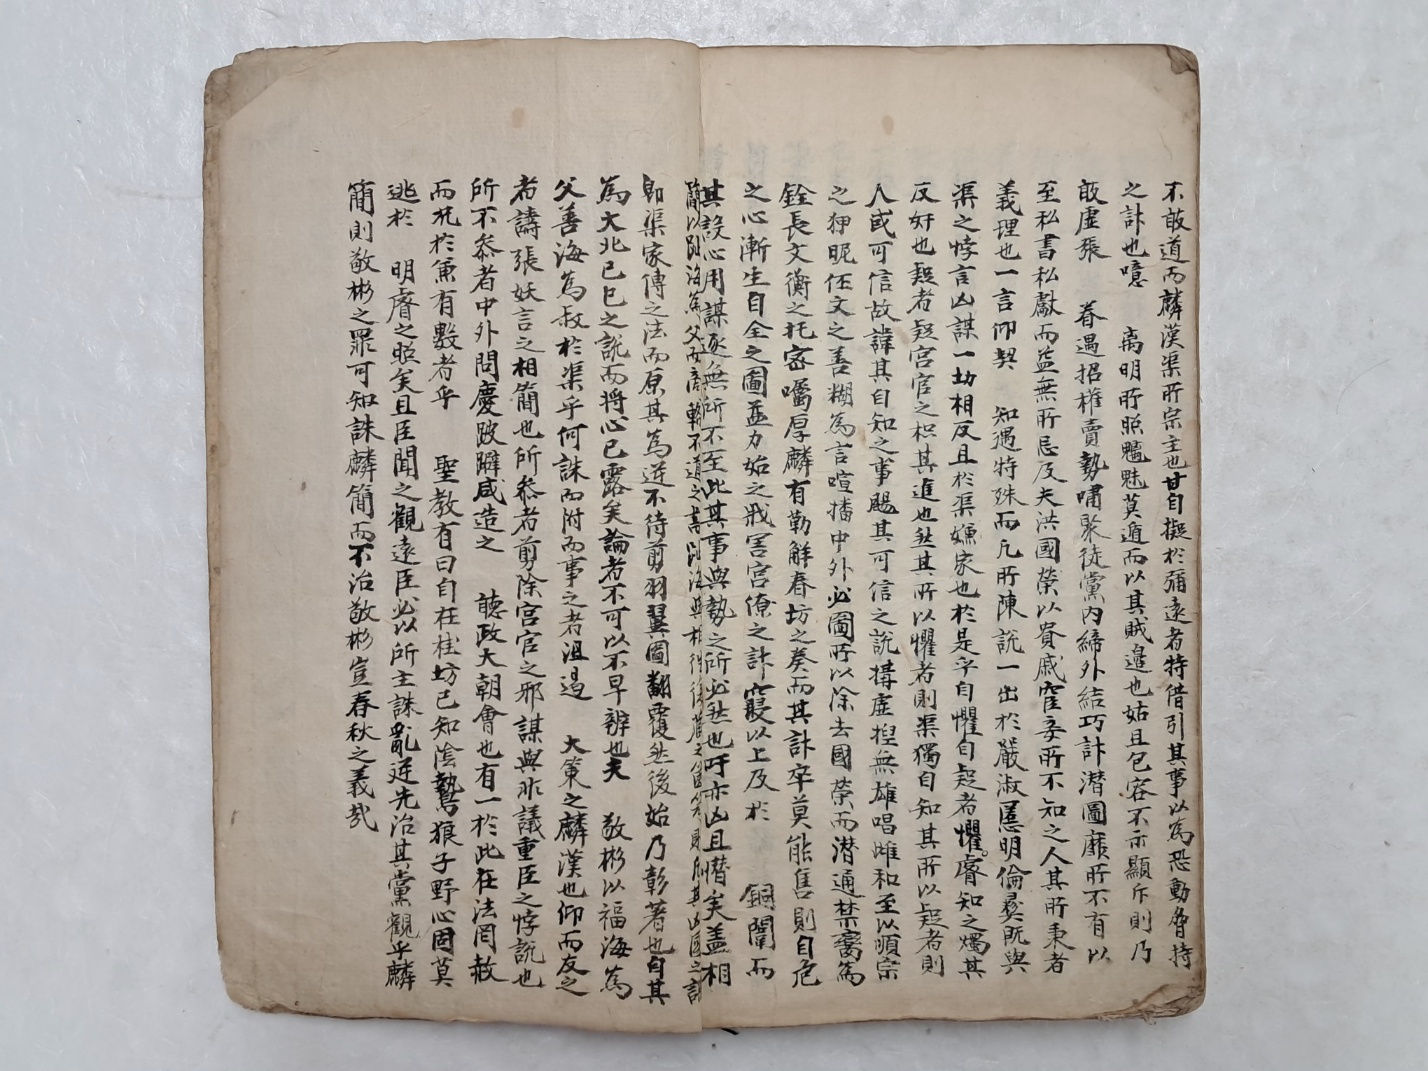 不敢道而麟漢渠所宗主也甘自擬於彌遠者特借引其事以為恐動脅持
之計也噫 离明所照魑魅莫遁而以其賊邉也姑且包容不示顯斥則乃
敢虛張 眷遇招權賣勢嘯聚徒黨內締外結巧計潜圖靡所不有以
至私書私獻而益無所忌及夫洪國榮以賓戚窪妾所不知之人其所秉者
義理也一言仰契 知遇特殊而凡所陳說一出於嚴淑慝明倫彛既與
渠之悖言凶謀一切相反且於渠嫌家也於是乎自懼自疑者懼 睿知之燭其
反奸也疑者疑宮官之枳其進也然其所以懼者則渠獨自知其所以疑者則
人或可信故諱其自知之事賜其可信之說搆虛捏無雄唱雌和至以順宗
之狎昵伾文之善糊為言喧播中外必圖所以除去國榮而潜通禁臠為
銓長文衡之托密囑厚麟有勒解春坊之奏而其計卒莫能售則自危
之心漸生自全之圖益力始之戕害宮僚之計寖以上及於 銅闈而
其設心用謀逐無所不至此其事與勢之所必然也吁亦凶且憯矣盖相
簡以趾海為父而 不道之書
卽渠家傳之法而原其為逆不待剪羽翼圖翻覆然後始乃彰著也自其
為大北已巳之說而將心已露矣論者不可以不早辨也夫 敬彬以福海為
父善海為叔於渠乎何誅而附而事之者沮遏 大策之麟漢也仰而友之
者譸張妖言之相簡也所叅者剪除宮官之邪謀與非議重臣之悖說也
所不叅者中外問慶跛躃咸造之 聽政大朝會也有一於此在法罔赦
而死於簾有數者乎 聖教有曰自在桂坊已知陰鷙狼子野心固莫
逃於 明睿之照矣且臣聞之觀遠臣必以所主誅亂逆先治其黨觀乎麟
簡則敬彬之罪可知誅麟簡而不治敬彬豈春秋之義哉